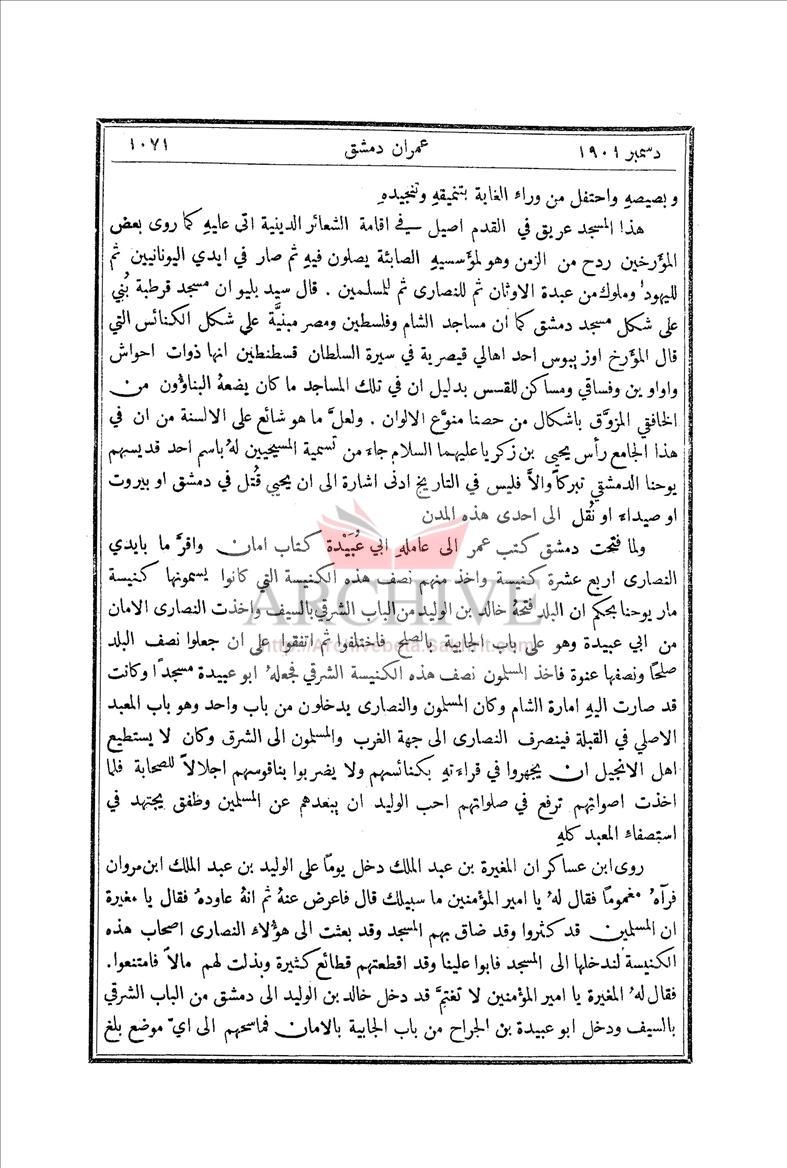 دسمبر ١٩٠١
عمران دمشق
١٠٧١
وبصيصهِ واحتفل من وراء الغاية بتنميقهِ وتنجيدهِ
هذا المسجد عريق في القدم اصيل في اقامة الشعائر الدينية اتى عليهِ كما روى بعض
المؤرخين ردح من الزمن وهو لمؤسسيهِ الصابئة يصلون فيهِ ثم صار في ايدي اليونانيين ثم
لليهود وملوك من عبدة الاوثان ثم للنصارى ثم للمسلمين . قال سيد بليو ان مسجد قرطبة بُني
على شكل مسجد دمشق كما ان مساجد الشام وفلسطين ومصر مبنيَّة على شكل الكنائس التي
قال المؤرخ اوز بيوس احد اهالي قيصرية في سيرة السلطان قسطنطين انها ذوات احواش
واواوين وفساقي ومساكن للقسس بدليل ان في تلك المساجد ما كان يضعهُ البناؤون من
الخافقي المزوَّق باشكال من حصنا منوَّع الالوان . ولعلَّ ما هو شائع على الالسنة من ان في
هذا الجامع رأس يحيى بن زكريا عليهما السلام جاء من تسمية المسيحيين لهُ باسم احد قديسهم
يوحنا الدمشقي تبركاً والاَّ فليس في التاريخ ادنى اشارة الى ان يحيى قُتل في دمشق او بيروت
او صيداء او نُقل الى احدى هذه المدن
ولما فتحت دمشق كتب عمر الى عاملهِ ابي عُبَيْدة كتاب امان واقرَّ ما بايدي
النصارى اربع عشرة كنيسة واخذ منهم نصف هذه الكنيسة التي كانوا يسمونها كنيسة
مار يوحنا بحكم ان البلد فتحهُ خالد بن الوليد من الباب الشرقي بالسيف واخذت النصارى الامان
من ابي عبيدة وهو على باب الجابية بالصلح فاختلفوا ثم اتفقوا على ان جعلوا نصف البلد
صلحاً ونصفها عنوة فاخذ المسلمون نصف هذه الكنيسة الشرقي فجعلهُ ابو عبيدة مسجداً وكانت
قد صارت اليهِ امارة الشام وكان المسلمون والنصارى يدخلون من باب واحد وهو باب المعبد
الاصلي في القبلة فينصرف النصارى الى جهة الغرب والمسلمون الى الشرق وكان لا يستطيع
اهل الانجيل ان يجهروا في قراءتهِ بكنائسهم ولا يضربوا بناقوسهم اجلالاً للصحابة فلما
اخذت اصواتهم ترفع في صلواتهم احب الوليد ان يبعدهم عن المسلمين وظفق يجتهد في
استصفاء المعبد كلهِ
روى ابن عساكر ان المغيرة بن عبد الملك دخل يوماً على الوليد بن عبد الملك ابن مروان
فرآهُ مغموماً فقال لهُ يا امير المؤمنين ما سبيلك قال فاعرض عنهُ ثم انهُ عاودهُ فقال يا مغيرة
ان المسلمين قد كثروا وقد ضاق بهم المسجد وقد بعثت الى هؤلاء النصارى اصحاب هذه
الكنيسة لندخلها الى المسجد فابوا علينا وقد اقطعتهم قطائع كثيرة وبذلت لهم مالاً فامتنعوا .
فقال لهُ المغيرة يا امير المؤمنين لا تغتمَّ قد دخل خالد بن الوليد الى دمشق من الباب الشرقي
بالسيف ودخل ابو عبيدة بن الجراح من باب الجابية بالامان فماسحهم الى ايّ موضع بلغ
ARCHIVE
http://Archivebeta.Sakhrit.com